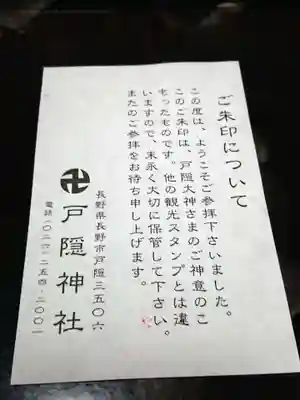 ご朱印について
この度は、ようこそご参拝下さいました。
このご朱印は、戸隠大神さまのご神意のこ
もったものです。他の観光スタンプとは違
いますので、末永く大切に保管して下さい。
またのご参拝をお待ち申し上げます。
長野県長野市戸隠三五〇六
卍戸隠神社
電話(〇二六-二五四-二〇〇一)